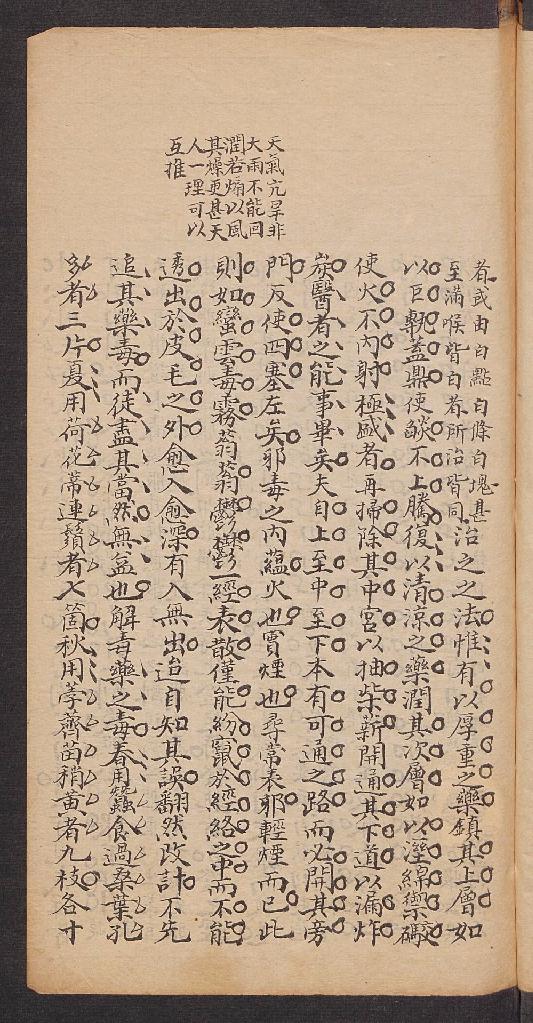 天氣亢旱非
大雨不能回
潤若煽以風
其燥更甚天
人一理可以
互推
者或由白點白條白塊甚
至滿喉皆白者所治皆同
治之之法惟有以厚重之藥鎮其上層如
以巨蓋鼎使燄不上騰復以清涼之藥潤其次層如以溼綿禦
使火不內射極盛者再掃除其中宮以抽柴薪開通其下道以漏炸
炭醫者之能事畢矣夫自上至中至下本有可通之路而必開其旁
門反使四塞左矣邪毒之內蘊火也煙也尋常表邪輕煙而已此
則如蠻雲毒霧蓊蓊鬱鬱一經表散僅能紛竄於經絡之中而不能
透出於皮毛之外愈入愈深有入無出迨自知其誤翻然改計不先
追其藥毒而徒盡其當然無益也解毒藥之毒春用蠶食過桑葉孔
多者三片夏用荷花蒂連鬚者七箇秋用荸薺苗稍黃者九枝各寸